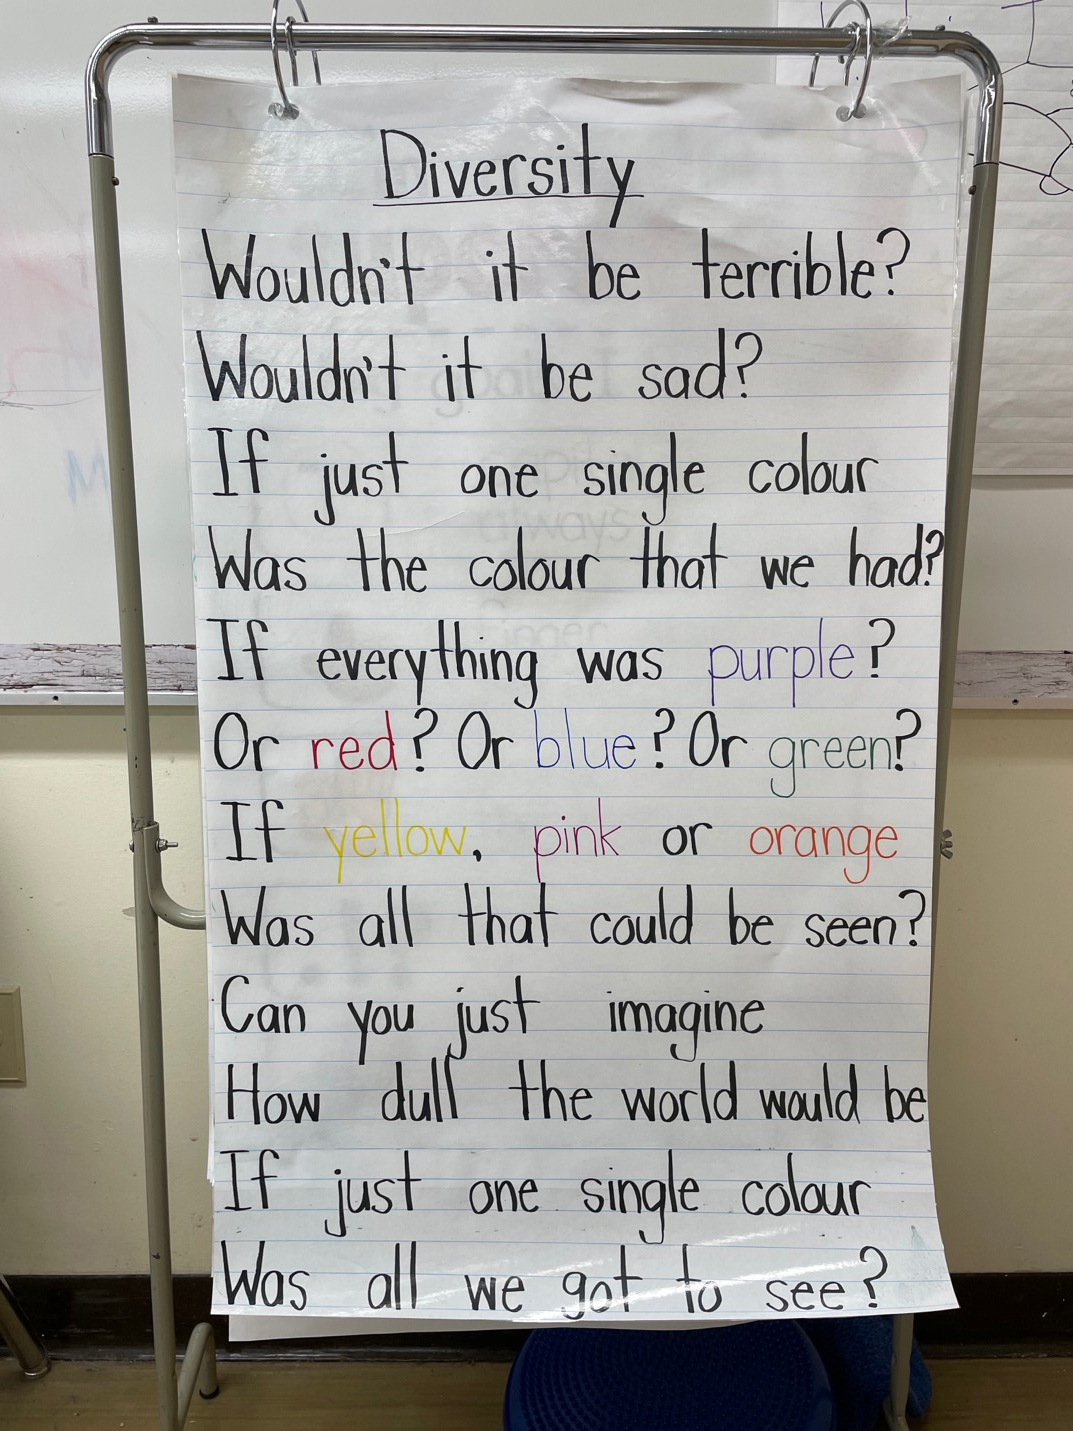 Diversity
Wouldn't it be terrible?
Wouldn't it be sad?
If just one single colour
Was the colour that we had?
If everything was purple?
Or red? Or blue? Or green?
If yellow, pink or orange
Was all that could be seen?
Can you just imagine
How dull the world would be
If just one single colour
Was all we got to see?
M